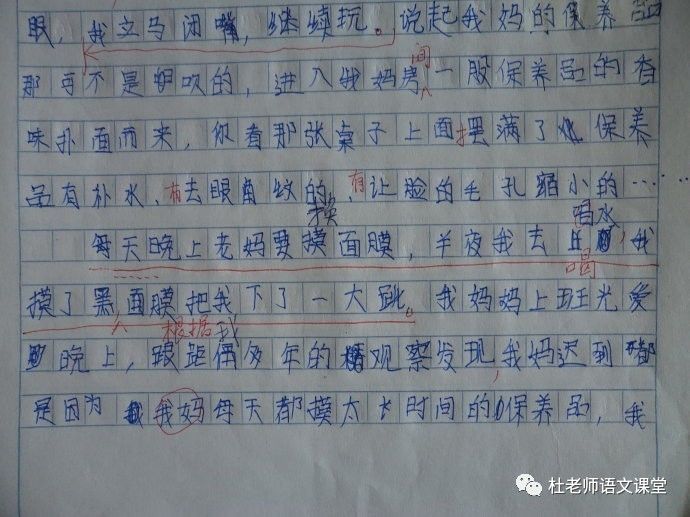 眼，我立马闭嘴，继续玩。说起我妈的保养品
那可不是吹的，进入我妈房间一股保养品的香
味扑面而来，你看那张桌子上面摆满了保养
品有补水、有去眼角纹的、有让脸的毛孔缩小的……
换 喝水
每天晚上老妈要摸面膜，半夜我去 喝，我
摸了黑面膜把我下了一大跳。我妈妈上班光爱
根据我
晚上，跟距偶多年的观察发现，我妈迟到都
是因为我妈每天都摸太长时间的保养品，我
杜老师语文课堂